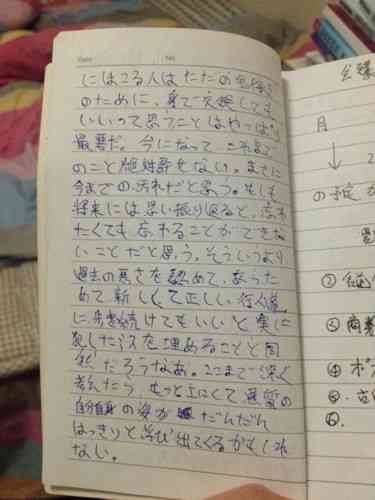 Date No
にはこる人はただの
のために、身で交換しても
いいって思うことはやっぱり
最悪だ。今になって これまで
のこと絶対許せない。まさに
今までの汚れだと思う。もしも
将来には思い振り返ると、忘れ
たくても忘れることができな
いことだと思う。そういうより
過去の悪さを認めて、あらた
めて新しくて正しい行為
に歩き続けてもいいと実に
犯したミスを埋めることと同
然だろうなあ。ここまで深く
考えたら、もっと上にくて最愛の
自分自身の姿が だんだん
はっきりと浮び出てくるかもしれ
ない。
月
↓ 2
の予定が
②
③ 商業
④ ボ
⑤.
⑥.